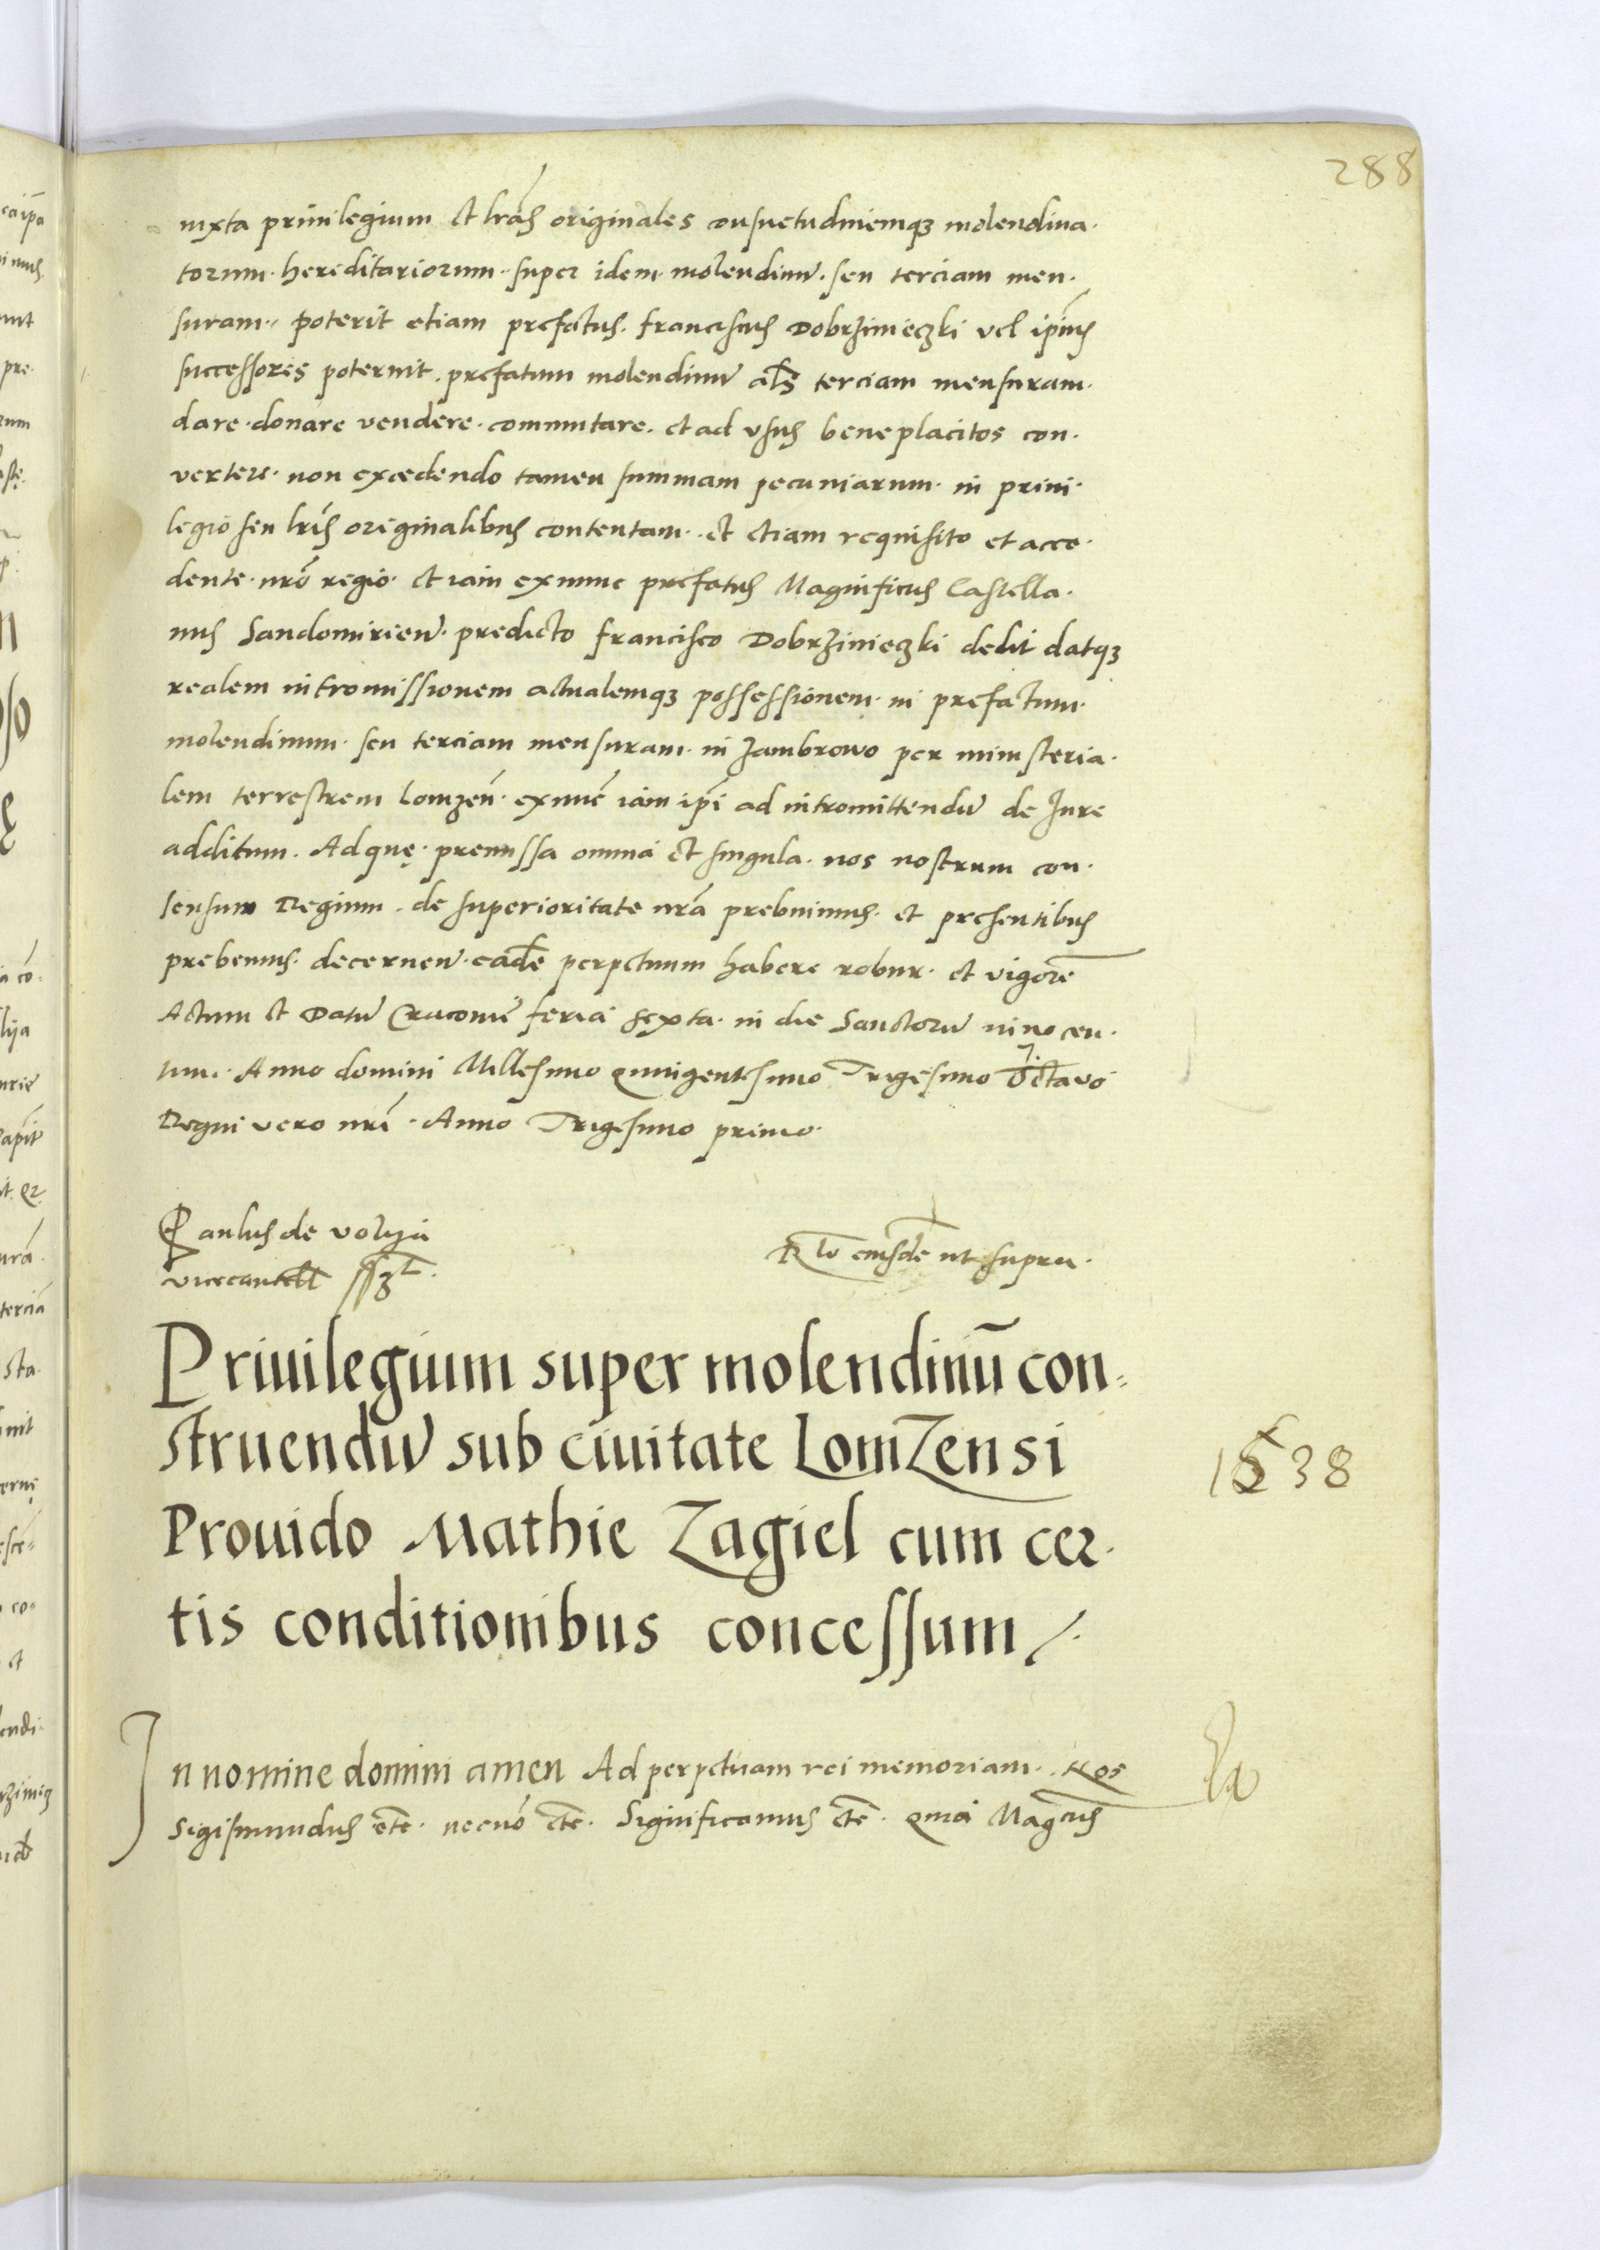 288
iuxta priuilegium et lrās originales consuetudinemqȝ molendina·
torum· hereditariorum· super idem· molendinū· seu terciam men·
suram·· poterit etiam prefatus· franciscus Dobrzinieczki vel ip̄ius
successores poterunt· prefatum molendinū als̄ terciam mensuram·
dare· donare vendere· commutare· et ad vsus beneplacitos con·
vertere· non excedendo tamen summam pecuniarum· in priui·
legio seu lrīs originalibus contentam· et etiam requisito et acce·
dente· nrō regio· et iam exnunc prefatus Magnificus Castella·
nus Sandomirien̄· predicto francisco Dobrzinieczki dedit datqȝ
realem intromissionem actualemqȝ possessionem· in prefatum·
molendinum· seu terciam mensuram· in Zambrowo per ministeria·
lem terrestrem lomzen̄· exnūc iam ip̄i ad intromittendū de Jure
additum· Ad quę· premissa omnia et singula· nos nostrum con·
sensum Regium· de superioritate nrā prebuimus· et presentibus
prebemus· decernen̄· eadē perpetuum habere robur· et vigorē
Actum et Datū Cracouię feria sexta· in die Sanctorū innocen·
tum· Anno domini Millesimo Quingentesimo Trigesimo Octauo
Regni vero nrī· Anno Trigesimo primo·
Paulus de volija
vicecancell sszt·
Rlō eiusdē ut supra·
Priuilegium super molendinū con=
struendū sub ciuitate Lomzensi
Prouido Mathie Zagiel cum cer·
tis conditionibus concessum
1538
In nomine domini amen Ad perpetuam rei memoriam· Nos
Sigismundus etc̄· necnō etc̄· Significamus etc̄· quia Magcus̄